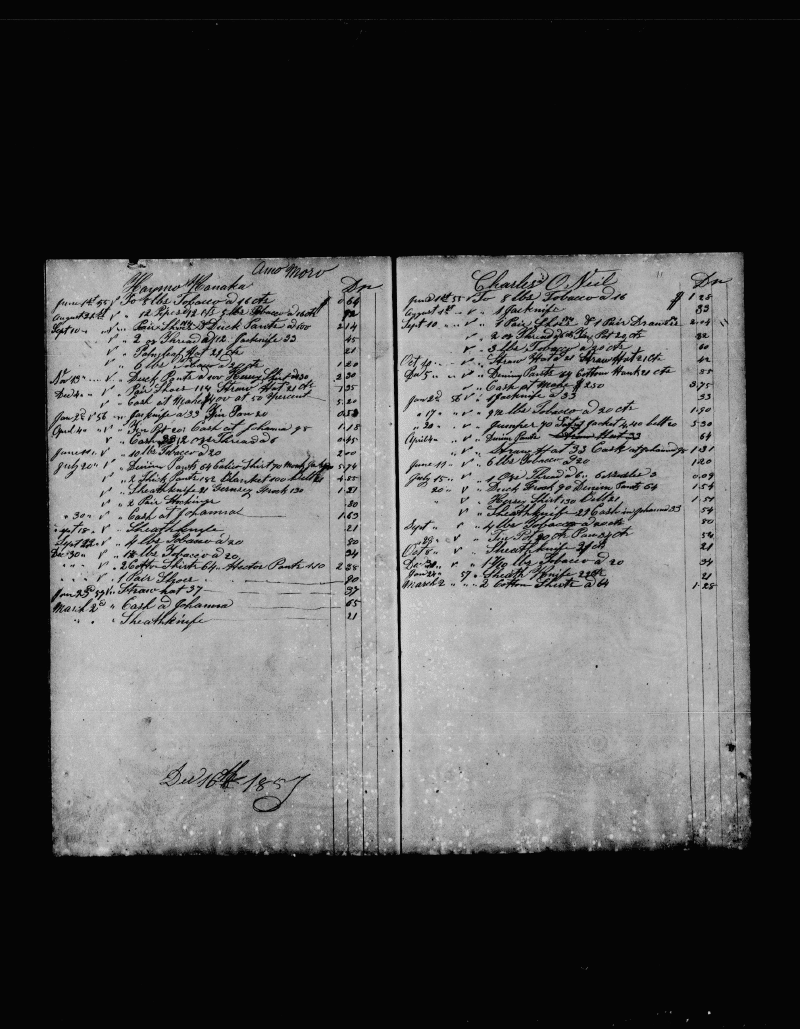 Amo Moro
Haymo Manaka Dr
June 1st 55 V To 8 lbs Tobacco a 16 cts $ 0 64
August 31st V " 12 2 lbs Tobacco a 16 cts 32
Sept 10 " V " Pair Shoes Duck Pants a 100 2 14
V " 2 oz Thread a 12 Jacknife 33 45
V " Hat 21 cts 21
V " 6 lbs Tobacco a 20 cts 1 20
Nov 13 " V " Duck Pants a 100 Kersey Shirt a 130 2 30
Dec 4 " V " Pair Shoes 114 Straw Hat 21 cts 1 35
V " Cash at Mahe 400 at 30 Percent 5 20
Jan 2d 56 V " Jacknife a 33 Pan 20 0 53
April 4 " V " Tin Pot 20 Cash at Johanna 98 1 18
V " 2 ozs Thread a 6 0 45
June 11 " V " 10 lbs Tobacco a 20 2 00
July 20 " V " Denim Pants 64 Calico Shirt 70 5 74
V " 2 Thick Pants 152 Blanket 100 Belt 21 4 25
V " Sheathknife 21 Gernsey Frock 130 1 51
V " 2 Pair 30
" 30 " V " Cash at Johanna 1 63
Sept 18 " V " Sheathknife 21
Sept 22 " V " 4 lbs Tobacco a 20 80
Dec 30 " V " lbs Tobacco a 20 34
" " " V " 2 Cotton Shirts 64 Pants 110 2 38
" " " V " 1 Pair Shoes 90
Jan 23d 57 V " Straw hat 37 37
March 2d " " Cash a Johanna 65
" " " Sheathknife 21
Dec 16th 1857
Charles O Neil Dr
June 1st 55 V To 8 lbs Tobacco a 16 $ 1 28
August 1st V " 1 Jacknife 33
Sept 10 " V " 1 Pair Shoes & 1 Pair Drawers 2 14
V " 2 oz Thread Tin Pot 20 cts 32
V " 3 lbs Tobacco a 20 cts 60
Oct 4 " V " Straw Hat a 21 Straw Hat 21 cts 42
Dec 5 " V " Denim Pants 64 Cotton Hank 21 cts 85
V " Cash at Mahe $ 2 50 3 75
Jan 2d 56 V " 1 Jacknife a 33 33
" 17 " V " 7 1/2 lbs Tobacco a 20 cts 1 50
" 20 " V " Jumper 70 Jacket 4,40 belt 20 5 30
April 4 " V " Denim Pants 64
V " Straw Hat 33 Cash at Johanna 98 1 31
June 11 " V " 6 lbs Tobacco a 20 1 20
July 15 " V " 1 Oze Thread a 6 Needles 3 0 09
20 " V " Duck Frock 90 Denim Pants 64 1 54
V " Kersey Shirt 130 belt 21 1 51
V " Sheathknife 21 Cash in Johanna 33 54
Sept " V " 4 lbs Tobacco a 20 cts 80
" 29 " V " Tin Pot 30 cts Pan 24 cts 54
Oct 8 " V " Sheathknife 21 cts 21
Dec 30 " V " 1 7/10 lbs Tobacco a 20 34
Jan 24 " 57 " Sheath Knife 21 cts 21
March 2 " " 2 Cotton Shirts a 64 1 28